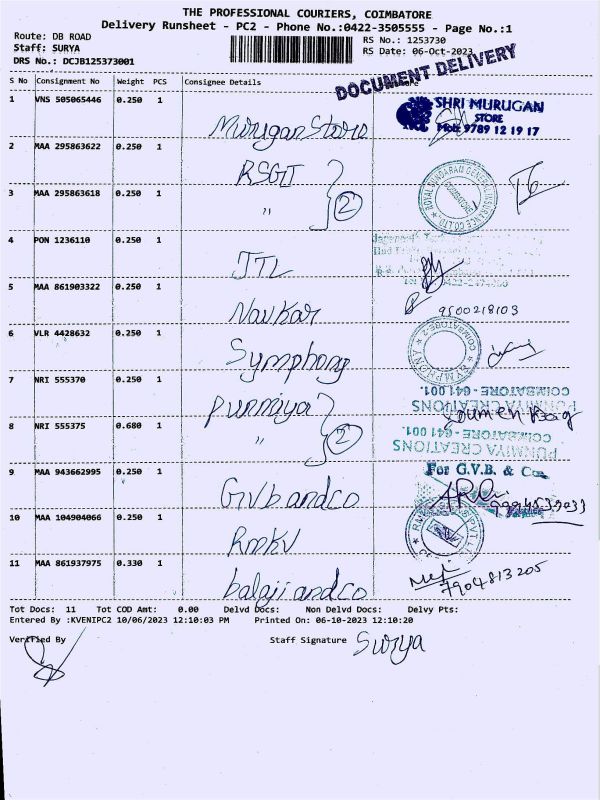 THE PROFESSIONAL COURIERS, COIMBATORE
Delivery Runsheet - PC2 - Phone No.:0422-3505555 - Page No.:1
Route: DB ROAD
RS No.: 1253730
Staff: SURYA
RS Date: 06-Oct-2023
DRS No.: DCJB125373001
DOCUMENT DELIVERY
S No Consignment No Weight PCS Consignee Details
1 VNS 505065446 0.250 1
Murugan Store
SHRI MURUGAN
STORE
Mob: 9789 12 19 17
2 MAA 295863622 0.250 1
RSGI
3 MAA 295863618 0.250 1
" 2
ROYAL SUNDARAM GENERAL INSURANCE CO. LTD
COIMBATORE
4 PON 1236110 0.250 1
JTL
5 MAA 861903322 0.250 1
Navkar
9500218103
6 VLR 4428632 0.250 1
Symphony
SYMPHONY
COIMBATORE-2
7 NRI 555370 0.250 1
Punmiya
PUNMIYA CREATIONS
COIMBATORE - 641 001.
8 NRI 555375 0.680 1
" 2
PUNMIYA CREATIONS
COIMBATORE - 641 001
9 MAA 943662995 0.250 1
GVb and co
For G.V.B. & Co.
10 MAA 104904066 0.250 1
RMKV
11 MAA 861937975 0.330 1
balaji and co
7904813205
Tot Docs: 11 Tot COD Amt: 0.00 Delvd Docs: Non Delvd Docs: Delvy Pts:
Entered By :KVENIPC2 10/06/2023 12:10:03 PM Printed On: 06-10-2023 12:10:20
Verified By
Staff Signature Surya